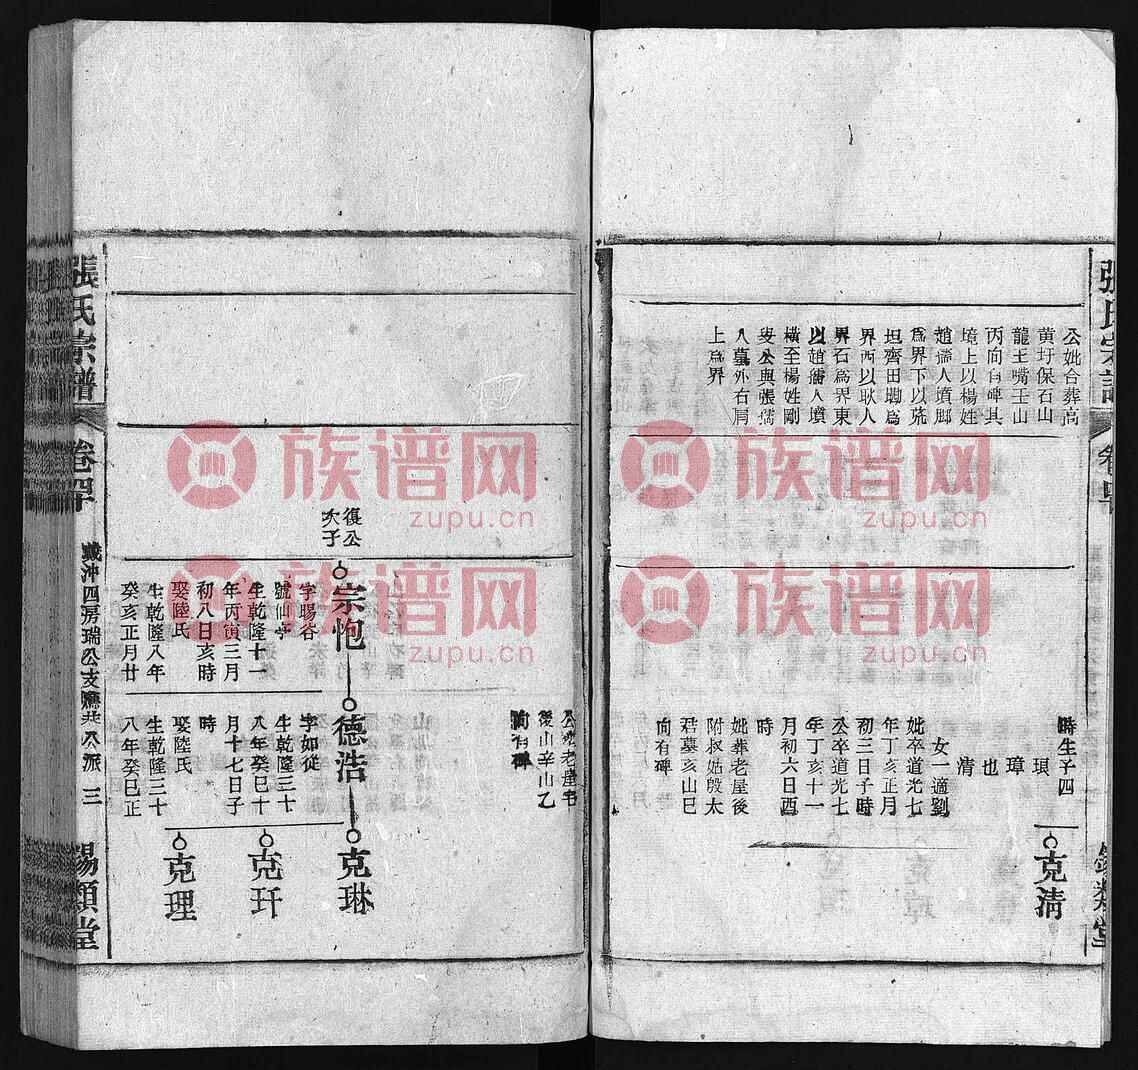 公妣合葬高
黄圩保石山
龍王嘴壬山
丙向有碑其
境上以楊姓
趙儒人墳腳
爲界下以
坦齊田墈爲
界西以耿人
界石爲界東
以趙儒人墳
橫至楊姓剛
叟公與張孺
人墓外右肩
上爲界
時生子四
琪
璋
也
清
女一適劉
妣卒道光七
年丁亥正月
初三日子時
公卒道光七
年丁亥十一
月初六日酉
時
妣葬老屋後
附叔姑殷太
君墓亥山巳
向有碑
克清
張氏宗譜
卷四
錫類堂
後山辛山乙
向有碑
復公
次子
宗炮
字暘谷
號仙亭
生乾隆十一
年丙寅三月
初八日亥時
娶陸氏
生乾隆八年
癸亥正月廿
德浩
字如從
生乾隆三十
八年癸巳十
月十七日子
時
娶陸氏
生乾隆三十
八年癸巳正
克琳
克玕
克理
張氏宗譜
卷四
戴沖四房瑞公支應共八派
三
錫類堂
族谱网
zupu.cn
族谱网
zupu.cn
族谱网
zupu.cn
族谱网
zupu.cn